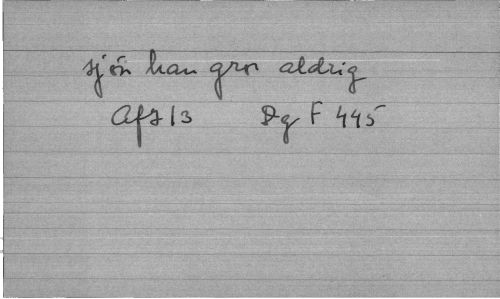 sjön han gror aldrig
Af713 Dg F 445